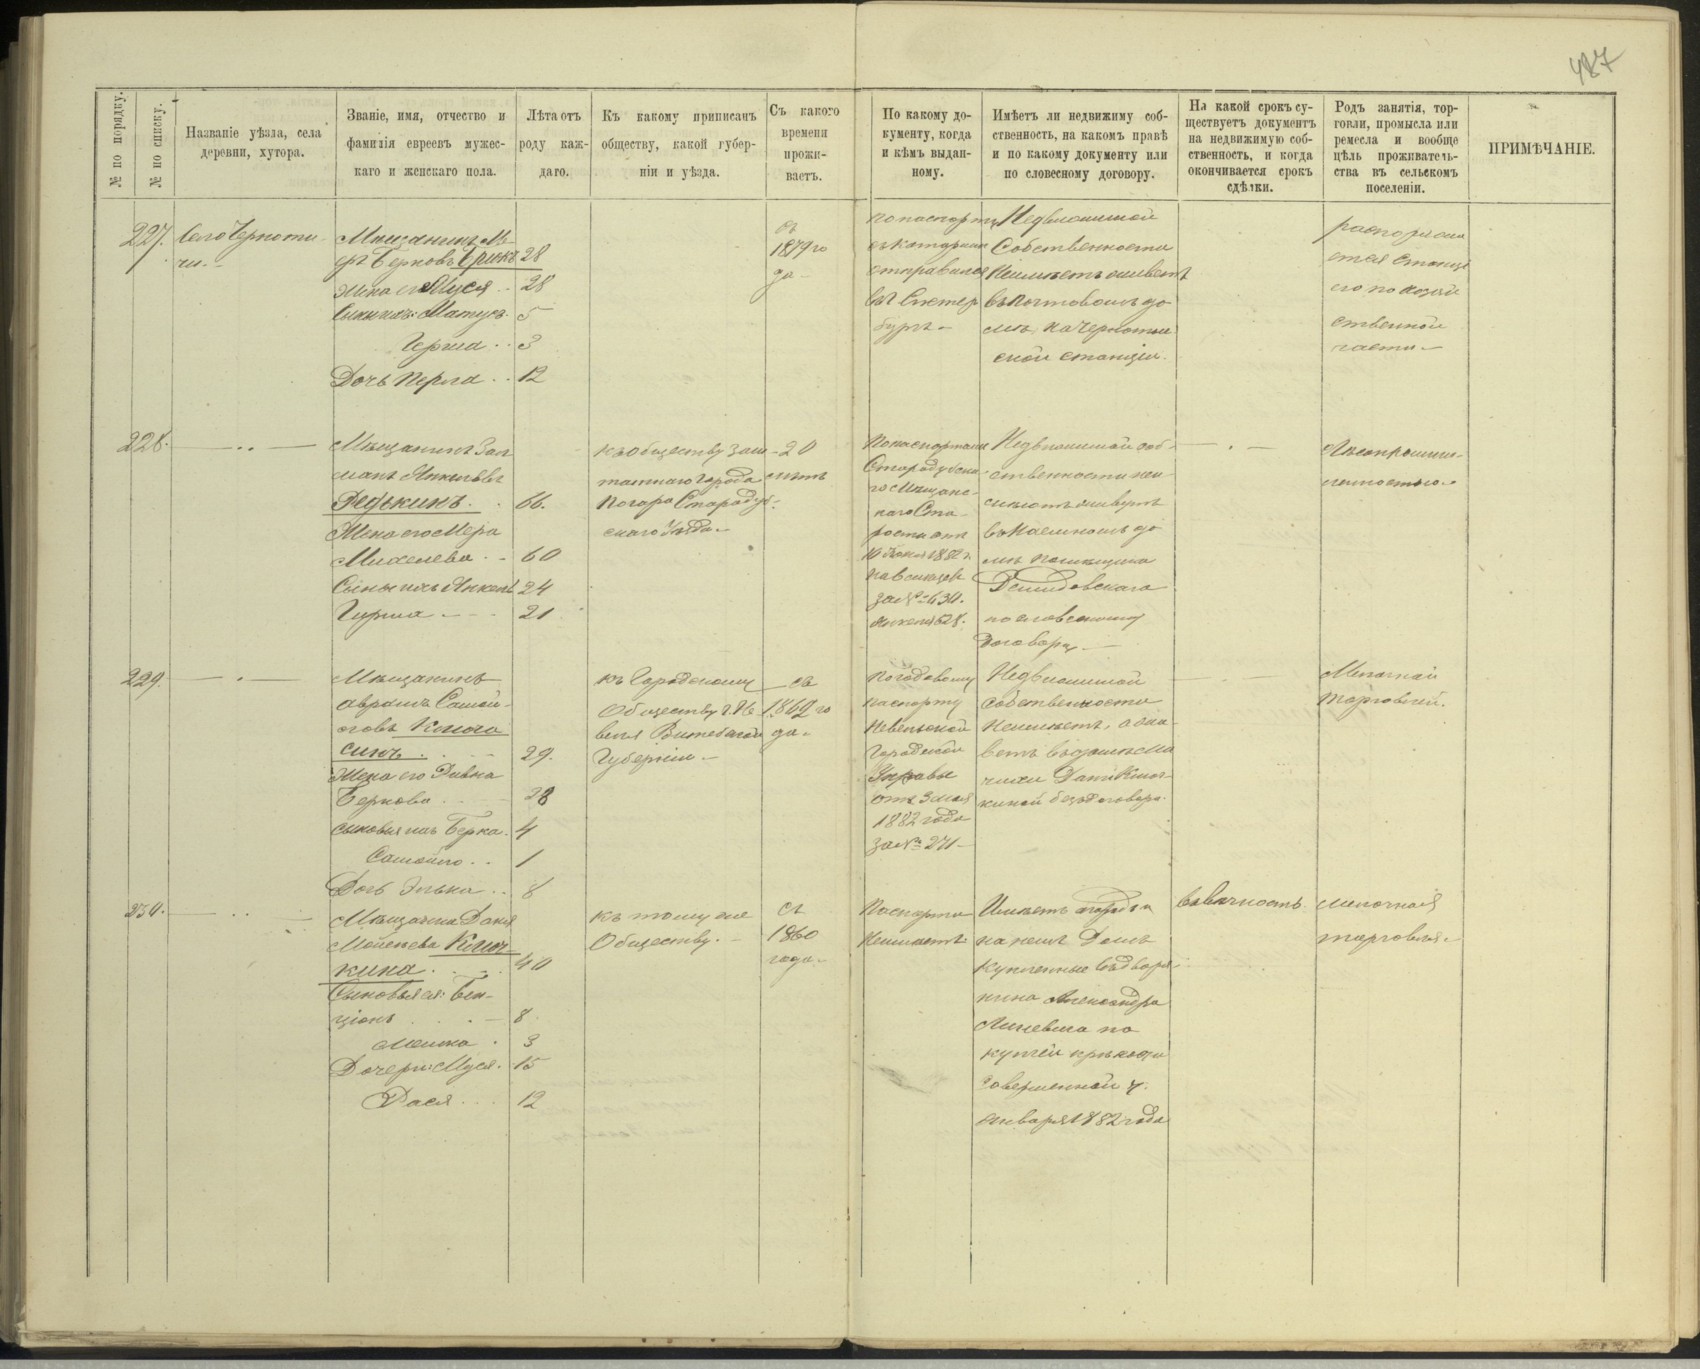 487
№ по порядку.
№ по списку.
Названіе уѣзда, села
деревни, хутора.
Званіе, имя, отчество и
фамилія евреевъ мужес-
каго и женскаго пола.
Лѣта отъ
роду каж-
даго.
Къ какому приписанъ
обществу, какой губер-
ніи и уѣзда.
Съ какого
времени
прожи-
ваетъ.
По какому до-
кументу, когда
и кѣмъ выдан-
ному.
Имѣетъ ли недвижиму соб-
ственность, на какомъ правѣ
и по какому документу или
по словесному договору.
На какой срокъ су-
ществуетъ документъ
на недвижимую соб-
ственность, и когда
окончивается срокъ
сдѣлки.
Родъ занятія, тор-
говли, промысла или
ремесла и вообще
цѣль проживатель-
ства въ сельскомъ
поселеніи.
ПРИМѢЧАНІЕ.
227.
Мѣщанинъ
Берковъ 28
Жена его Муся 28
Сыны ихъ: Матусъ 5
Герша 3
Дочь Перла 12
съ
1879 го
да
по паспорту
съ которымъ
отправился
въ С. петер
бургъ
Недвижимой
Собственности
Неимѣетъ живетъ
въ почтовомъ до
мѣ, на
ской станціи.
распоряжа
ется станці
ею по хозяй
ственной
части
228.
Мѣщанинъ Зал
манъ Янкелевъ
Редькинъ 66.
Жена его Мера
Михелева 60
Сыны ихъ Янкель 24
Гирша 21
къ обществу заш
татнаго города
Погара Стародуб-
скаго Уѣзда
20
лѣтъ
По паспортамъ
Стародубска
го Мѣщанс-
каго Ста-
росты отъ
1882 г.
за № 630.
Недвижимой соб-
ственности неи
мѣютъ живутъ
въ наемномъ до
мѣ помѣщика
по словесному
договору
229.
Мѣщанинъ
Абрамъ Самой-
ловъ 29.
Жена его Ривка
Беркова 28
сыновья ихъ Берка 4
Самойло 1
Дочь Элька 8
къ Городскому
Обществу г. Не
веля Витебской
Губерніи
съ
1862 го
да
погодовому
паспорту
Невельской
Городской
Управы
отъ 3 мая
1882 года
за № 271
Недвижимой
собственности
Неимѣетъ, а жи-
ветъ въ домѣ Мѣ
кой безъ договора.
Мелочной
торговлей.
230.
Мѣщанка
Ключ-
кина 40
Сыновья ея: Бен-
ціонъ 8
3
Дочери: Муся 15
Рася 12
къ тому же
Обществу.
съ
1860
года
Паспорта
Неимѣетъ
Имѣетъ
на немъ Домъ
купленные у дворя
нина Александра
Линевича по
купчей крѣпости
совершенной 7.
января 1882 года
въ вѣчность
мелочная
торговля